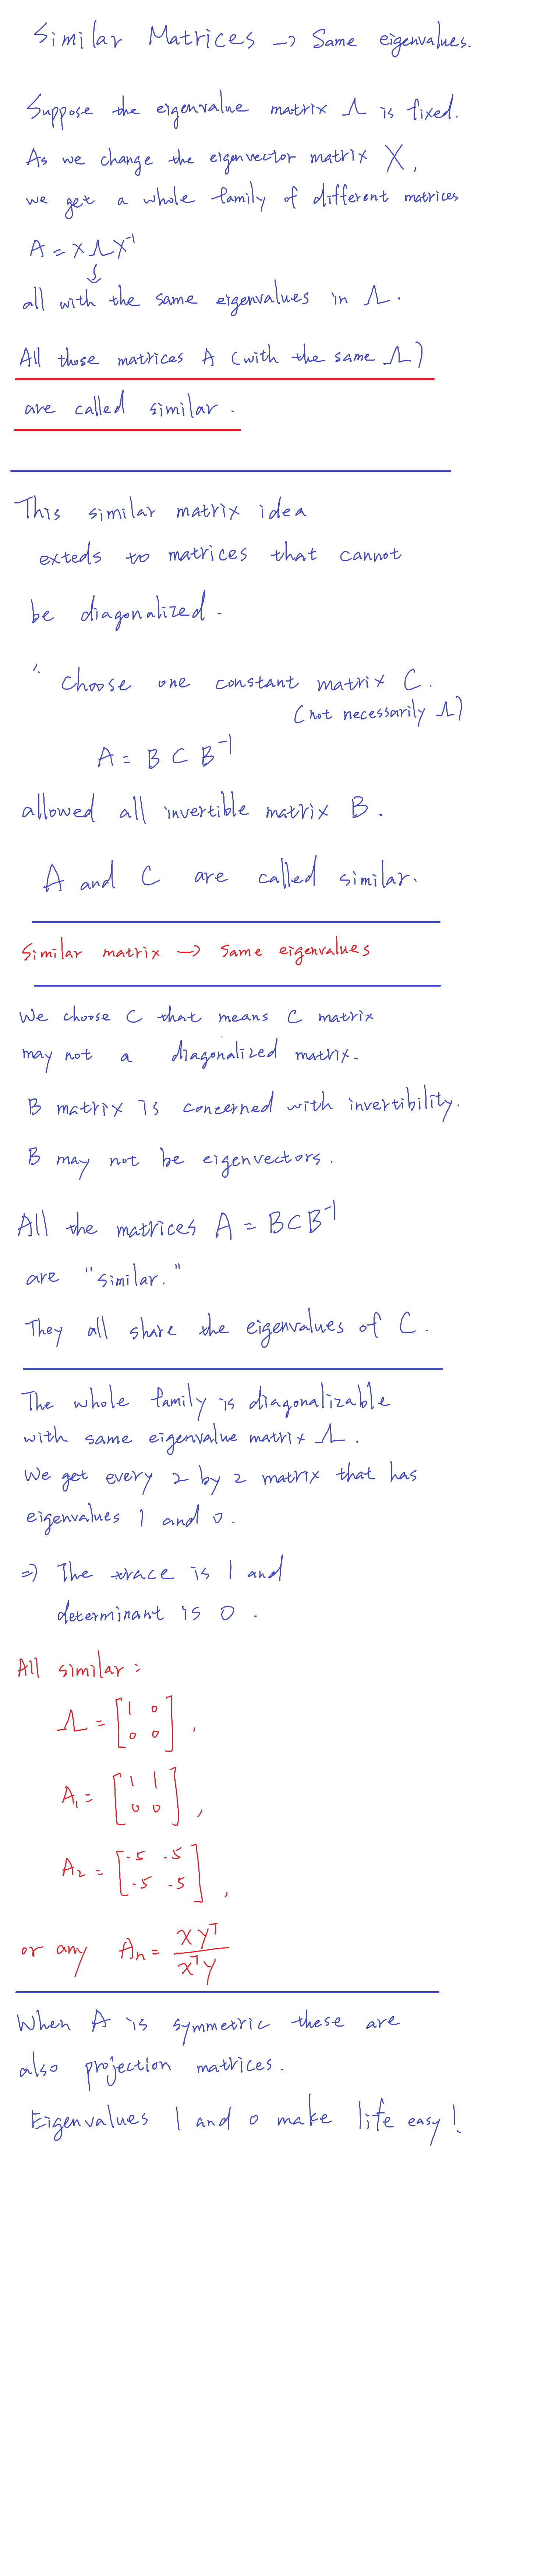 Similar Matrices → Same eigenvalues.
Suppose the eigenvalue matrix Λ is fixed.
As we change the eigenvector matrix X,
we get a whole family of different matrices
A = XΛX⁻¹
↓
all with the same eigenvalues in Λ.
All those matrices A (with the same Λ)
are called similar.
This similar matrix idea
exteds to matrices that cannot
be diagonalized.
∴ Choose one constant matrix C.
(not necessarily Λ)
A = B C B⁻¹
allowed all invertible matrix B.
A and C are called similar.
Similar matrix → same eigenvalues
We choose C that means C matrix
may not a diagonalized matrix.
B matrix is concerned with invertibility.
B may not be eigenvectors.
All the matrices A = BCB⁻¹
are "similar."
They all share the eigenvalues of C.
The whole family is diagonalizable
with same eigenvalue matrix Λ.
We get every 2 by 2 matrix that has
eigenvalues 1 and 0.
⇒ The trace is 1 and
determinant is 0.
All similar:
Λ = [1 0
0 0],
A₁ = [1 1
0 0],
A₂ = [.5 .5
.5 .5],
or any Aₙ = xyᵀ
xᵀy
When A is symmetric these are
also projection matrices.
Eigenvalues 1 and 0 make life easy!